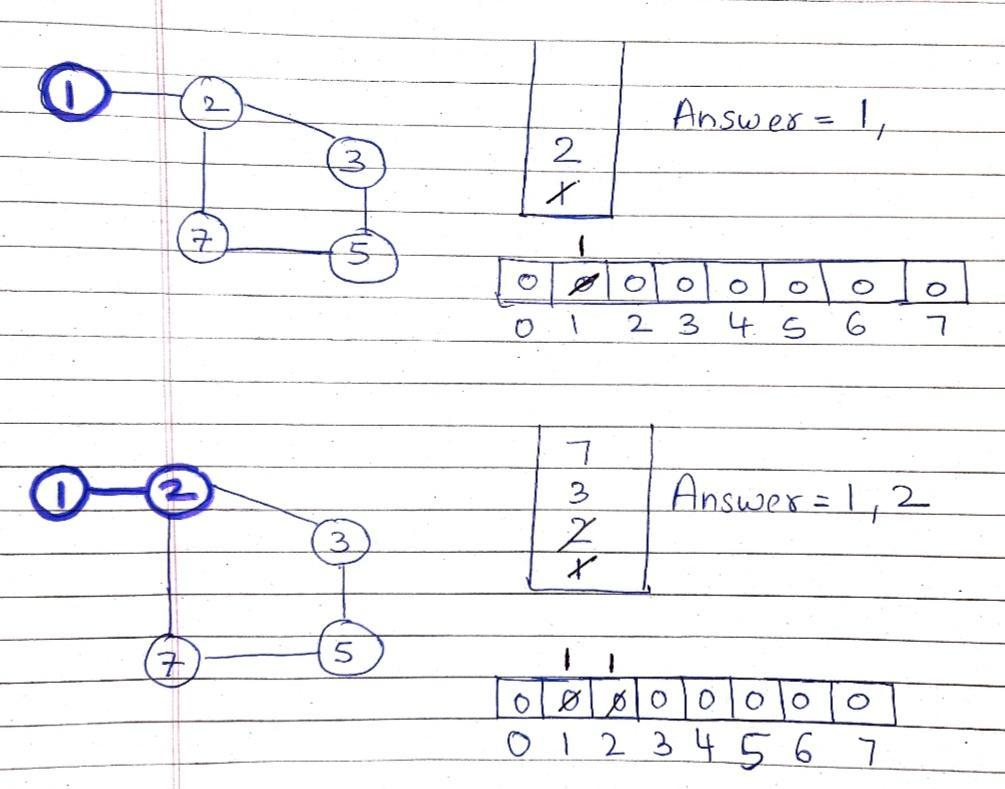 1
2
3
7
5
2
1
Answer = 1,
1
0 0 0 0 0 0 0 0
0 1 2 3 4 5 6 7
1
2
3
7
5
7
3
2
1
Answer = 1, 2
1 1
0 0 0 0 0 0 0 0
0 1 2 3 4 5 6 7